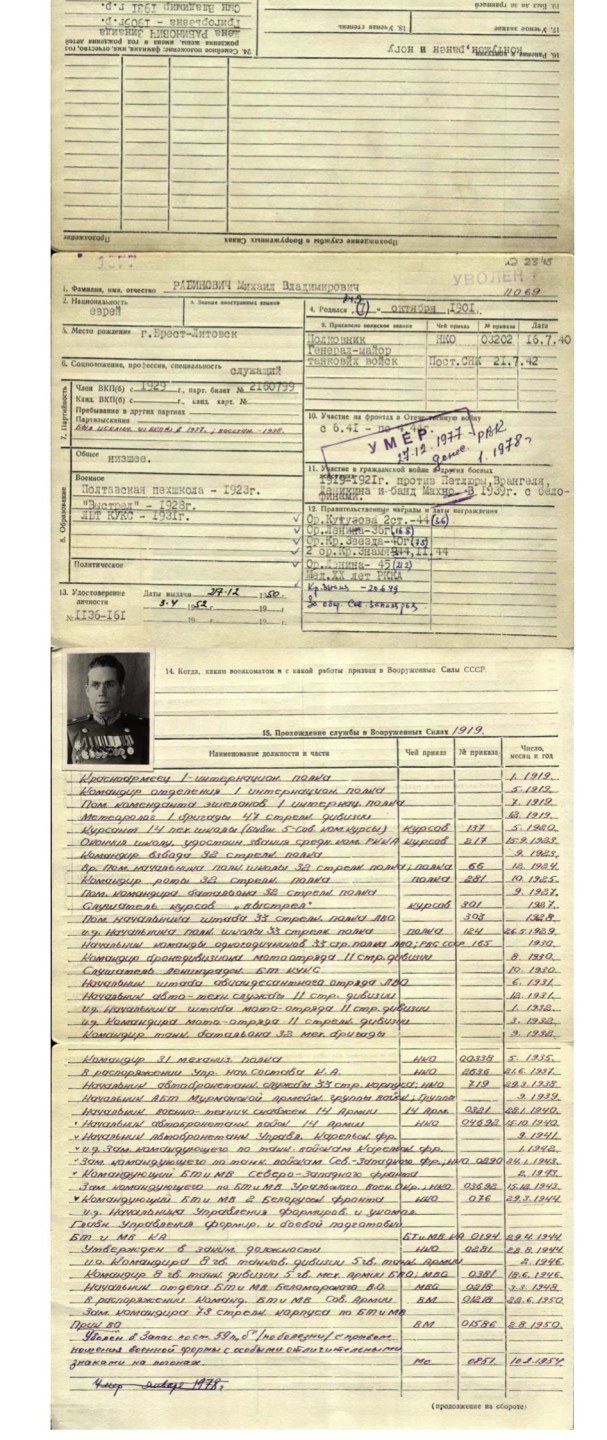 Продолжение
Прохождение службы в Вооруженных Силах
16. Ранения и контузии контужен, ранен в ногу
17. Ученое звание
18. Ученая степень
19. Был ли за границей
24. Семейное положение: фамилия, имя, отчество, год
рождения жены, имена и год рождения детей
жена РАБИНОВИЧ Зинаида
Григорьевна – 1905г.р.
Сын Владимир 1931 г.р.
УВОЛЕН
11069
1. Фамилия, имя, отчество РАБИНОВИЧ Михаил Владимирович
2. Национальность
еврей
3. Знание иностранных языков
4. Родился октября 1901.
5. Место рождения г.Брест-Литовск
6. Соцположение, профессия, специальность
служащий
7. Партийность
Член ВКП(б) с 1929 г., парт. билет № 2160799
Канд. ВКП(б) с г., канд. карт. №
Пребывание в других партиях
Партвзыскания
8. Образование
Общее
низшее.
Военное
Полтавская пехшкола - 1923г.
"Выстрел" - 1928г.
ЛБТ КУКС - 1931г.
Политическое
9. Присвоено воинское звание
Чей приказ
№ приказа
Дата
Полковник НКО 03202 16.7.40
Генерал-майор
танковых войск Пост.СНК 21.7.42
10. Участие на фронтах в Отечественную войну
с 6.41 - по
УМЕР.
27.12.1977
1.1978г
11. Участие в гражданской войне и других боевых
1919-1921г. против Петлюры, Врангеля,
Деникина и банд Махно. В 1939г. с бело-
финами.
12. Правительственные награды и даты награждения
Ор.Кутузова 2ст.-44
Ор.Ленина-36г (16.8)
Ор.Кр.Звезда-40г
2 ор.Кр.Знамя-44, 11.44
Ор.Ленина- 45
Мед.ХХ лет РККА
13. Удостоверение
личности
№ II36-I6I
Даты выдачи 27.12 1950г.
3.4 1952г.
14. Когда, каким военкоматом и с какой работы призван в Вооруженные Силы СССР.
15. Прохождение службы в Вооруженных Силах 1919.
Наименование должности и части
Чей приказ
№ приказа
Число,
месяц и год
Красноармеец 1-интернацион. полка 1.1919.
Командир отделения 1 интернацион. полка 5.1919.
Пом. коменданта эшелонов 1 интернац. полка 7.1919.
Метеоролог 1 бригады 47 стрелк. дивизии 12.1919.
Курсант 14 пех. школы (бывш. 5 Сов. ком. курсы) Курсов 137 5.1920.
Окончил школу, удостоен звания средн. ком. РККА Курсов 217 15.9.1923.
Командир взвода 32 стрелк. полка 9.1923.
Вр. пом. начальника полк. школы 32 стрелк. полка; полка 66 12.1924.
Командир роты 32 стрелк. полка полка 281 10.1925.
Пом. командира батальона 32 стрелк. полка 9.1927.
Слушатель курсов „Выстрел" Курсов 301 1927.
Пом. начальника штаба 33 стрелк. полка ЛВО 303 1928.
и.д. Начальника полк. школы 33 стрелк. полка полка 124 26.5.1929.
Начальник команды одногодичников 33 стр. полка ЛВО; РВС СССР 165 1930.
Командир бронедивизиона мотоотряда 11 стр. дивизии 8.1930.
Слушатель Ленинградск. БТ КУКС 10.1930.
Начальник штаба авиадесантного отряда ЛВО 6.1931.
Начальник авто-техн. службы 11 стр. дивизии 12.1931.
и.д. Начальника штаба мото-отряда 11 стр. дивизии 1.1932.
и.д. Командира мото-отряда 11 стрелк. дивизии 3.1932.
Командир танк. батальона 32 мех. бригады 9.1932.
Командир 31 механиз. полка НКО 00338 5.1935.
В распоряжении Упр. нач. состава К.А. НКО 2636 21.6.1937.
Начальник автобронетанк. службы 33 стр. корпуса; НКО 719 29.3.1938.
Начальник АБТ Мурманской армейск. группы войск; Группы 9.1939.
Начальник военно-технич. снабжен. 14 Армии 14 Арм. 0321 28.1.1940.
Начальник автобронетанк войск 14 Армии НКО 04692 15.10.1940.
Начальник автобронетанк Управл. Карельск фр. 9.1941.
и.д. Зам. командующего по танк. войскам Карельск фр. 1.1942.
Зам. командующего по танк. войскам Сев.-Западного фр.; НКО 0290 24.1.1943.
Командующий БТ и МВ Северо-Западного фронта 2.1943.
Зам. командующего по БТ и МВ Уральского Воен. Окр.; НКО 03692 15.12.1943.
Командующий БТ и МВ 2 Белорусск фронта НКО 076 29.3.1944
и.д. Начальника Управления формиров. и укомпл.
Главн Управления формир. и боевой подготовки
БТ и МВ КА БТ и МВ КА 0194 29.4.1944
Утвержден в заним. должности НКО 0281 22.8.1944
и.д. Командира 8 гв. танков. дивизии 5 гв. танк. армии 2.1946.
Командир 8 гв. танк. дивизии 5 гв. мех. армии БВО; МВС 0381 18.6.1946.
Начальник отдела БТ и МВ Беломорского В.О. МВС 0218 3.3.1948.
В распоряжении Команд. БТ и МВ Сов. Армии ВМ 01218 22.6.1950.
Зам. командира 73 стрелк. корпуса по БТ и МВ
ПриКВО ВМ 01586 2.8.1950.
Уволен в Запас по ст. 59 п. „б" /по болезни/ с правом
ношения военной формы с особыми отличительными
знаками на погонах. МО 0851
Умер январе 1978.
(продолжение на обороте)